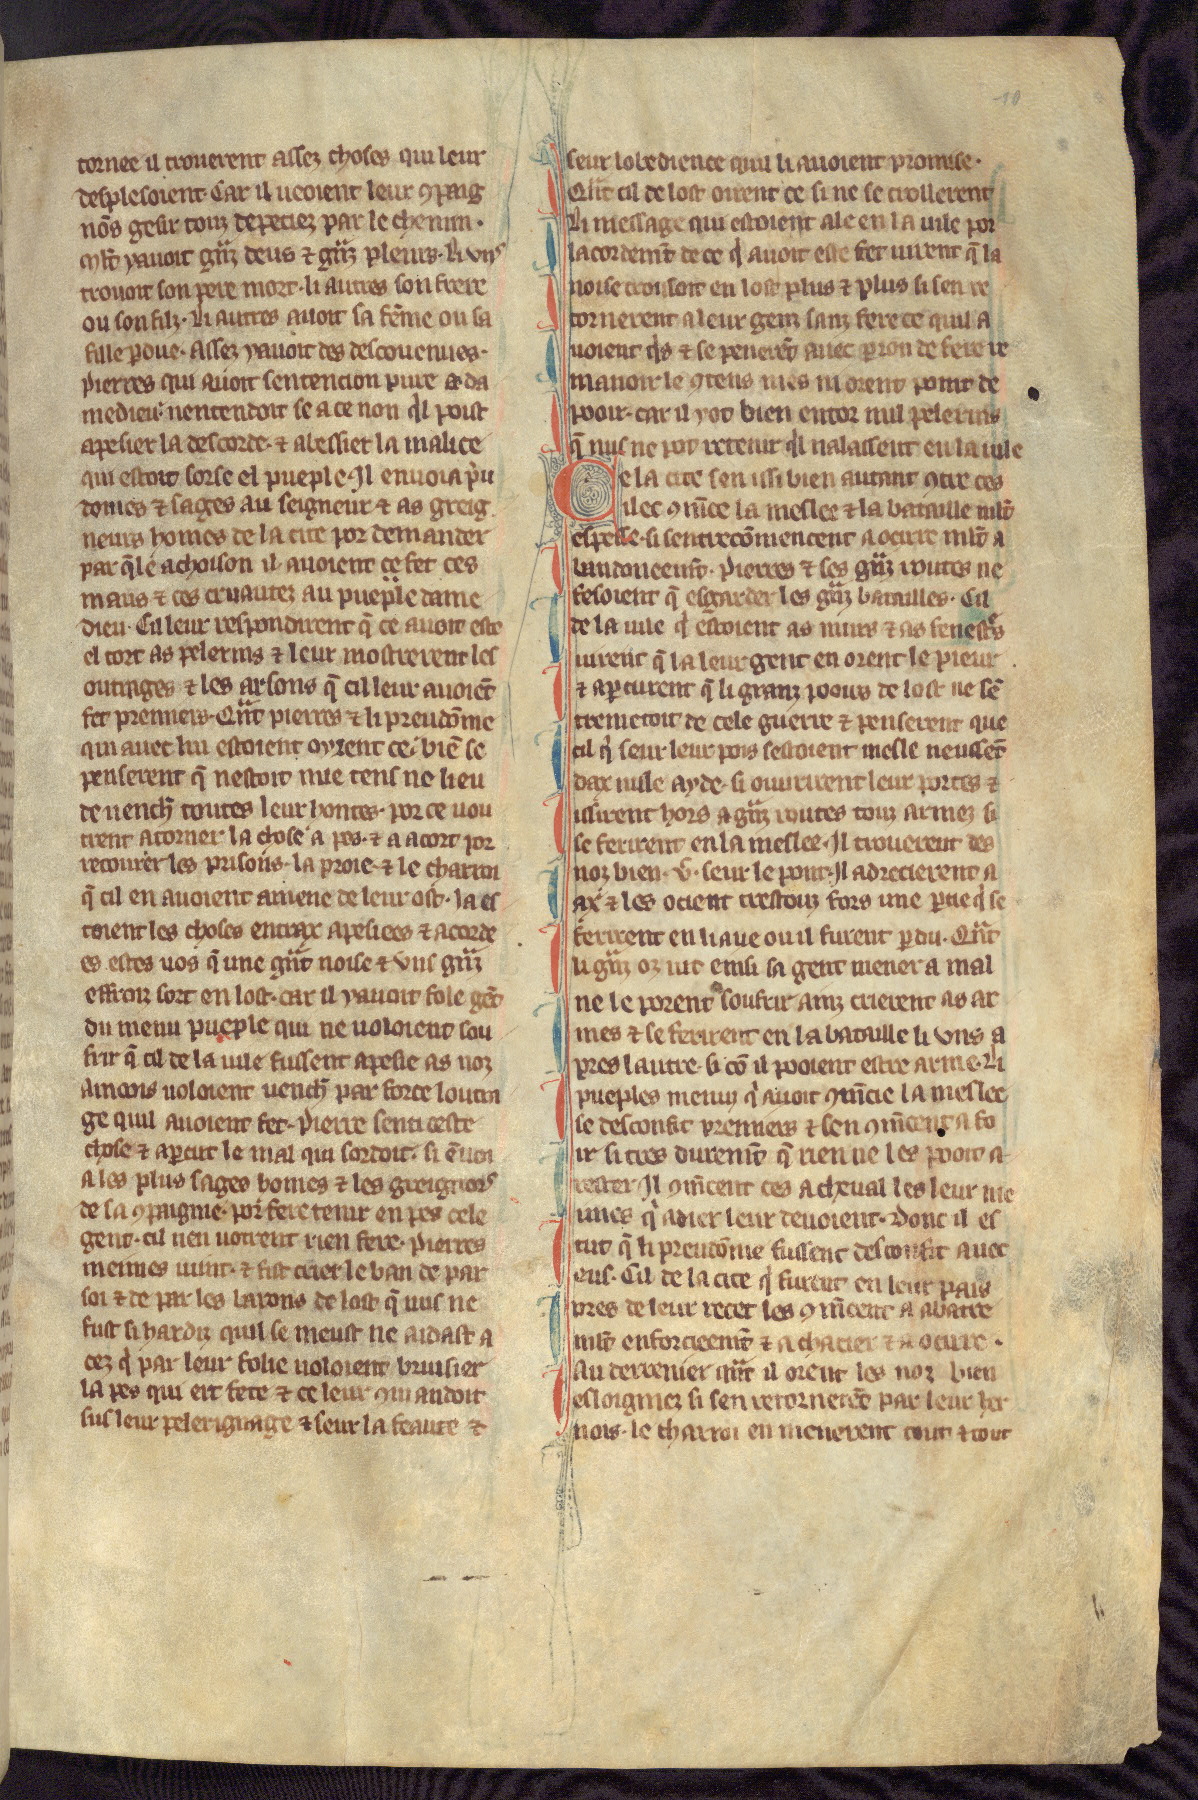 10
tornee il trouerent assez choses qui leur
desplesoient. Car il ueoient leur ꝯpaig
nōs gesir touz depeciez par le chemin.
ml̄t yauoit gnz deus ⁊ gnz pleurs. Li vns
trouoit son pere mort. li autres son frere
ou son filz. Li autres auoit sa fēme ou sa
fille ꝑdue. Assez yauoit des descouenues.
Pierres qui auoit sentencion pure a da
medieu nentendoit se a ce non q̄l poist
apesier la descorde. ⁊ abessier la malice
qui estoit sorse el pueple. Il enuoia pru
domes ⁊ sages au seigneur ⁊ as greig
neurs homes de la cite por demander
par q̄le achoison il auoient ce fet ces
maus ⁊ ces cruautez au pueple dame
dieu. Cil leur respondirent q̄ ce auoit este
el tort as pelerins ⁊ leur mostrerent les
outrages ⁊ les arsons q̄ cil leur auoiēt
fet premiers. Qn̄t pierres ⁊ li preudōme
qui auec lui estoient oyrent ce. biē se
penserent q̄ nestoit mie tens ne lieu
de uench̄ toutes leur hontes. por ce uou
trent atorner la chose a pes. ⁊ a acort por
recourer les prisons. la proie. ⁊ le charroi
q̄ cil en auoient amene de leur ost. Ja es
toient les choses entrax apesiees ⁊ acorde
es estes uos q̄ une gn̄t noise ⁊ vns gnz
effroiz sort en lost. car il yauoit fole gēt
du menu pueple qui ne uoloient sou
frir q̄ cil de la uile fussent apesie as noz
Aincois uoloient uench̄ par force loutra
ge quil auoient fet. Pierre senti ceste
chose ⁊ aꝑcut le mal qui sordoit. si ēuoi
a les plus sages homes ⁊ les greignors
de sa ꝯpaignie. por fere tenir en pes cele
gent. cil nen uotrent rien fere. Pierres
meimes uint. ⁊ fist crier le ban de par
soi ⁊ de par les barons de lost q̄ nus ne
fust si hardiz quil se meust ne aidast a
cez q̄ par leur folie uoloient bruisier
la pes qui ert fete ⁊ ce leur ꝯmandoit
sus leur pelerignage ⁊ seur la feaute ⁊
seur lobedience quil li auoient promise.
Qn̄t cil de lost oirent ce si ne se crollerent
Li message qui estoient ale en la uile por
lacordemt̄ de ce q̄ auoit este fet uirent q̄ la
noise croissoit en lost plus ⁊ plus si sen re
tornerent a leur genz sanz fere ce quil a
uoient q̄s ⁊ se penerēt auec perron de fere re
manoir le ꝯtens mes ni orent point de
pooir. car il yot bien entor mil pelerins
q̄ nus ne pot retenir q̄l nalassent en la uile
De la cite sen issi bien autant ꝯtre ces
ilec ꝯmēce la meslee ⁊ la bataille ml̄t
espesse. si sentrecōmencent a ocirre ml̄t a
bandoneemt̄. Pierres ⁊ ses gnz routes ne
fesoient q̄ esgarder les gnz batailles. Cil
de la uile q̄ estoient as murs ⁊ as fenestrēs
uirent q̄ la leur gent en orent le pieur
⁊ aꝑcurent q̄ li granz pooirs de lost ne sē
tremetoit de cele guerre ⁊ penserent que
cil q̄ seur leur pois sestoient mesle neussēt
dax nulle ayde. si ouurirent leur portes ⁊
issirent hors a gnz routes touz armez si
se ferirent en la meslee. Il trouerent des
noz bien .v. seur le pont. Il adrecierent a
ax ⁊ les ocient trestouz fors une ꝑtie q̄ se
ferirent en liaue ou il furent ꝑdu. Qn̄t
li gnz oz uit einsi sa gent mener a mal
ne le porent soufrir ainz crierent as ar
mes ⁊ se ferirent en la bataille li vns a
pres lautre. si cō il pooient estre arme. Li
pueples menuz q̄ auoit ꝯmēcie la meslee
se desconfit premiers ⁊ sen ꝯmēcent a fo
ir si tres duremt̄ q̄ rien ne les pooit a
rester. Il ꝯmēcent ces a cheual les leur me
imes q̄ aidier leur deuoient. Donc il es
tut q̄ li preudōme fussent desconfit auec
eus. Cil de la cite q̄ furent en leur pais
pres de leur recet les ꝯmēcent a abatre
ml̄t enforcieemt̄ ⁊ a chacier ⁊ a ocirre.
Au derrenier qn̄t il orent les noz bien
esloigniez si sen retornerēt par leur her
nois. le charroi en menerent tout ⁊ tout